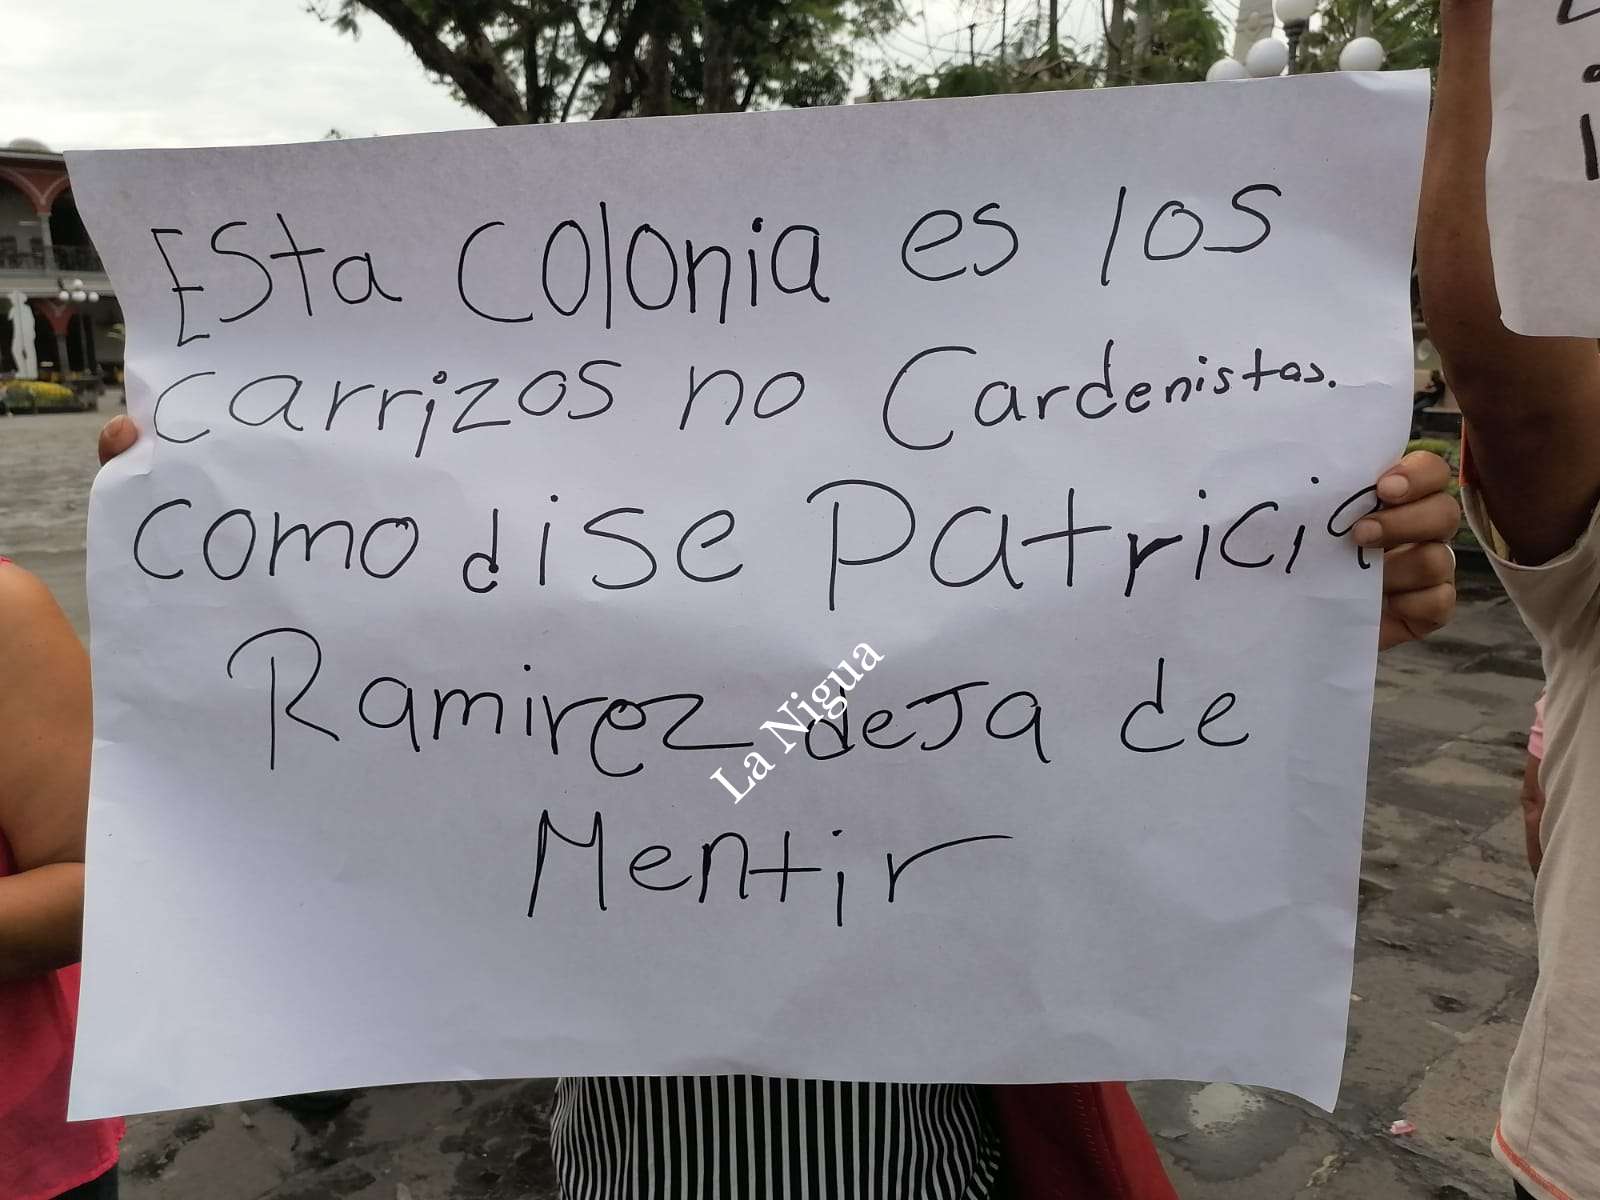 Esta Colonia es los
carrizos no Cardenistas.
como dise Patricia
Ramirez deja de
Mentir
La Nigua